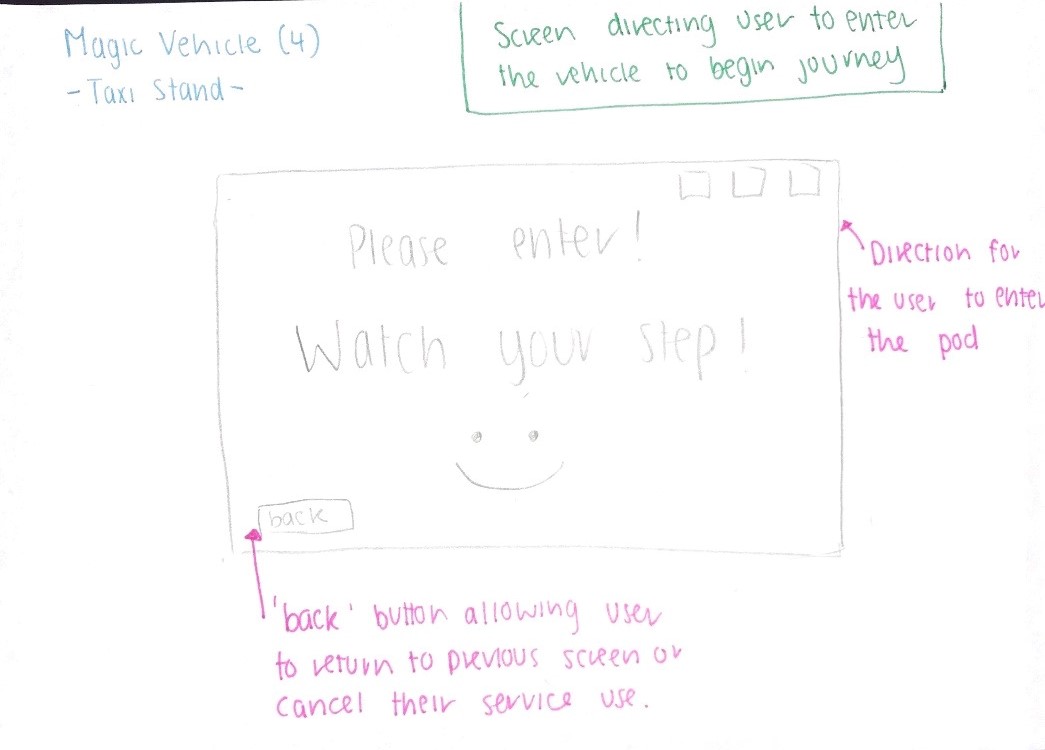 Magic Vehicle (4)
- Taxi Stand -
Screen directing user to enter
the vehicle to begin journey
Please enter!
Watch your step!
back
Direction for
the user to enter
the pod
'back' button allowing user
to return to previous screen or
cancel their service use.